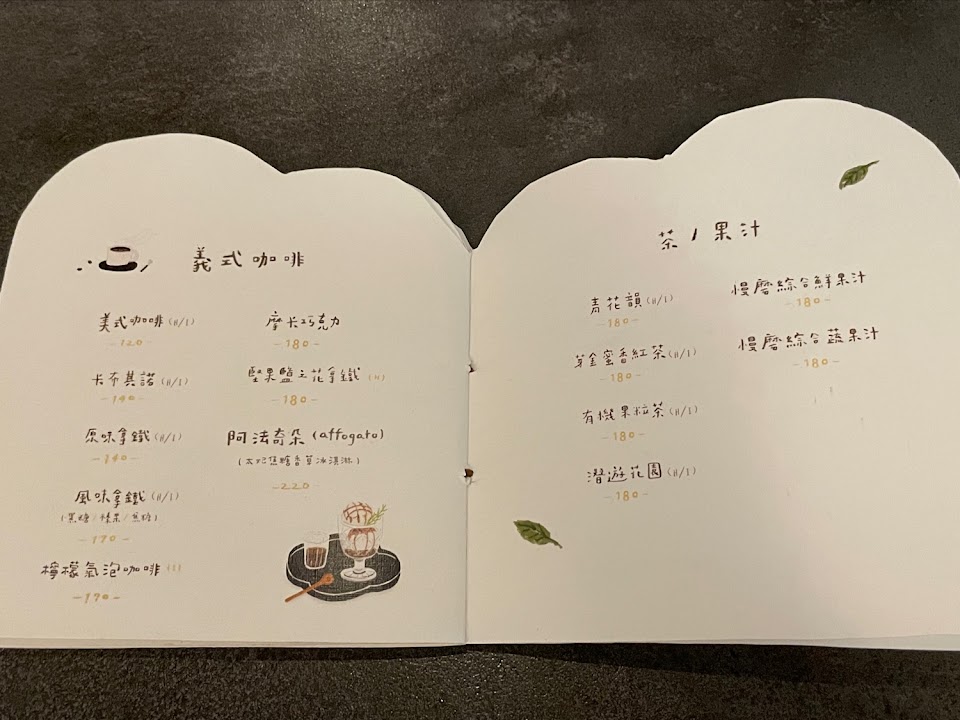 義式咖啡
美式咖啡 (H/I)
-120-
卡布其諾 (H/I)
-140-
原味拿鐵 (H/I)
-140-
風味拿鐵 (H/I)
(黑糖/榛果/焦糖)
-170-
檸檬氣泡咖啡 (I)
-170-
摩卡巧克力
-180-
堅果鹽之花拿鐵 (H)
-180-
阿法奇朵 (affogato)
(太妃焦糖香草冰淇淋)
-220-
茶/果汁
青花韻 (H/I)
-180-
蜜香紅茶 (H/I)
-180-
有機果粒茶 (H/I)
-180-
潛遊花園 (H/I)
-180-
慢磨綜合鮮果汁
-180-
慢磨綜合蔬果汁
-180-